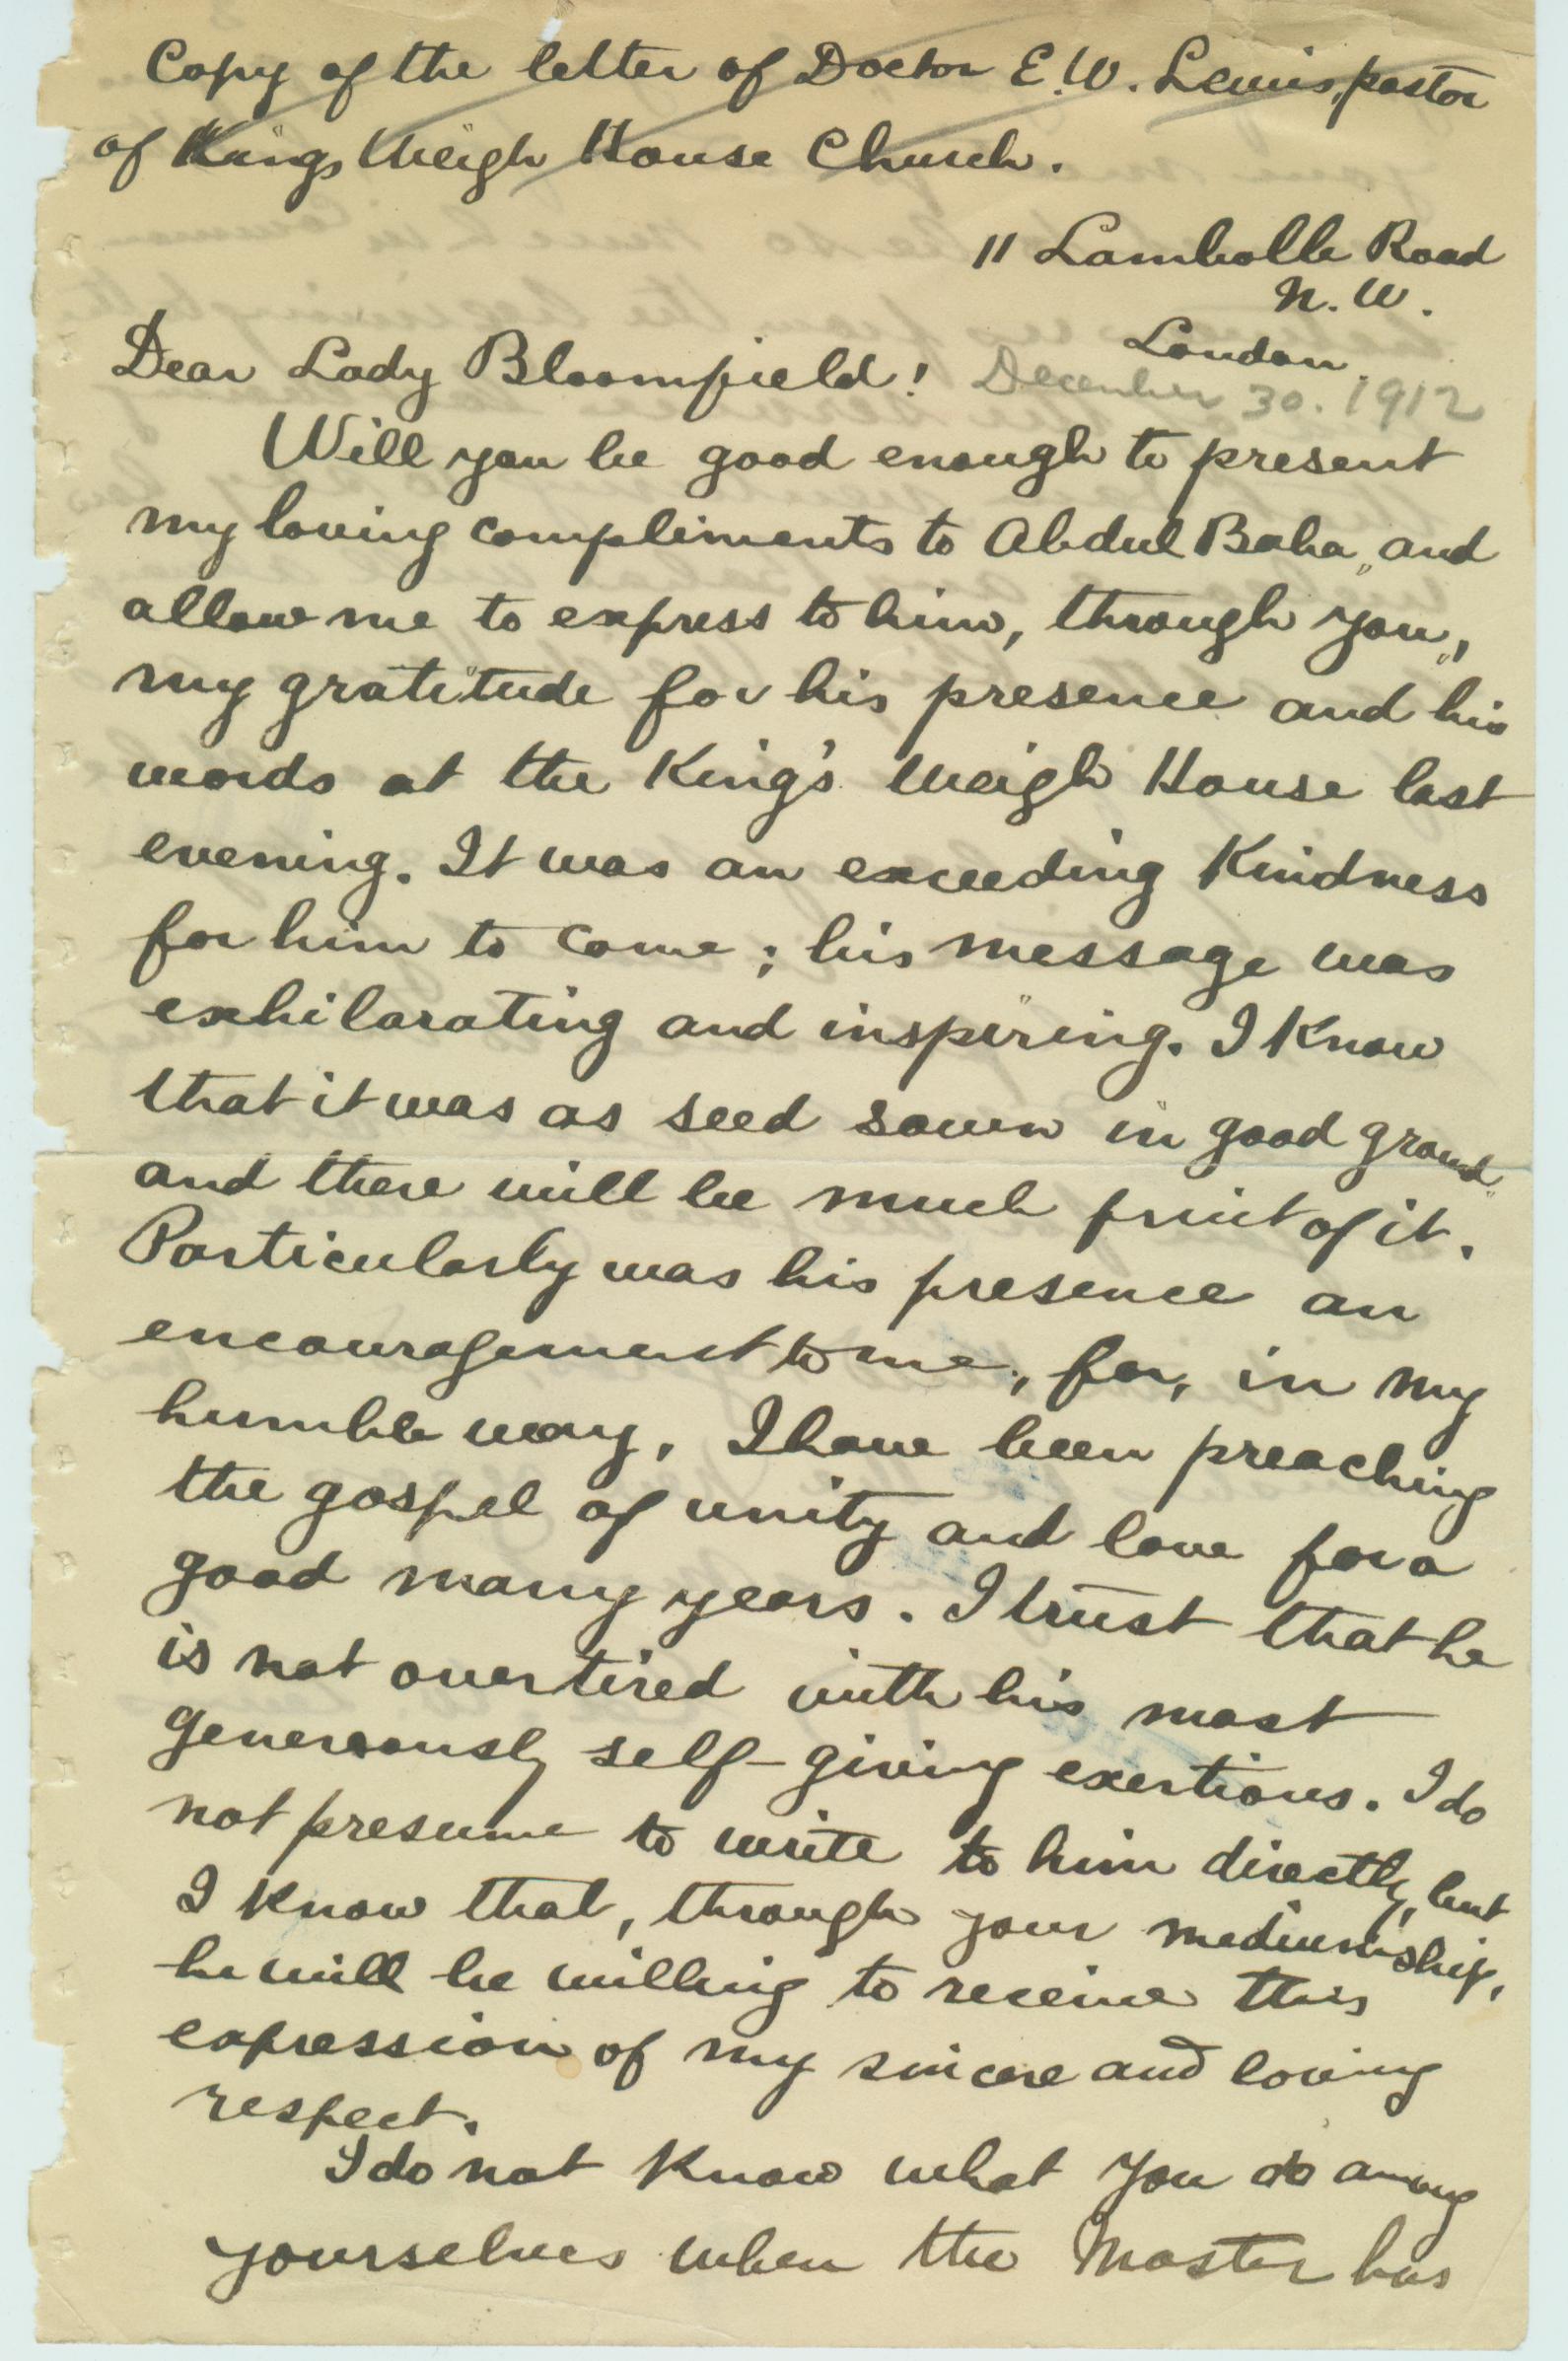 Copy of the letter of Doctor E.W. Lewis, pastor
of Kings Weigh House Church.
11 Lambolle Road
N.W.
London.
Dear Lady Bloomfield! December 30. 1912
Will you be good enough to present
my loving compliments to Abdul Baha, and
allow me to express to him, through you,
my gratitude for his presence and his
words at the King's Weigh House last
evening. It was an exceeding Kindness
for him to come; his message was
exhilarating and inspiring. I Know
that it was as seed sown in good ground
and there will be much fruit of it.
Particularly was his presence an
encouragement to me, for, in my
humble way, I have been preaching
the gospel of unity and love for a
good many years. I trust that he
is not overtired with his most
generously self-giving exertions. I do
not presume to write to him directly, but
I know that, through your mediumship,
he will be willing to receive this
expression of my sincere and loving
respect.
I do not Know what you do among
yourselves when the Master has